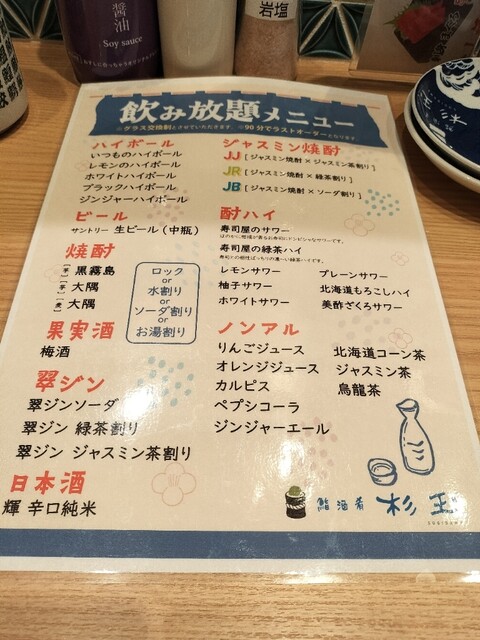 醤油
Soy sauce
岩塩
飲み放題メニュー
※グラス交換制とさせていただきます。 ※90分でラストオーダーとなります。
ハイボール
いつものハイボール
レモンのハイボール
ホワイトハイボール
ブラックハイボール
ジンジャーハイボール
ビール
サントリー 生ビール (中瓶)
焼酎
[芋] 黒霧島
[芋] 大隅
[麦] 大隅
ロック
or
水割り
or
ソーダ割り
or
お湯割り
果実酒
梅酒
翠ジン
翠ジンソーダ
翠ジン 緑茶割り
翠ジン ジャスミン茶割り
日本酒
輝 辛口純米
ジャスミン焼酎
JJ [ ジャスミン焼酎 × ジャスミン茶割り ]
JR [ ジャスミン焼酎 × 緑茶割り ]
JB [ ジャスミン焼酎 × ソーダ割り ]
酎ハイ
寿司屋のサワー
寿司屋の緑茶ハイ
レモンサワー
柚子サワー
ホワイトサワー
プレーンサワー
北海道もろこしハイ
美酢ざくろサワー
ノンアル
りんごジュース
オレンジジュース
カルピス
ペプシコーラ
ジンジャーエール
北海道コーン茶
ジャスミン茶
烏龍茶
鮨 酒 肴 杉玉
SUGIDAMA